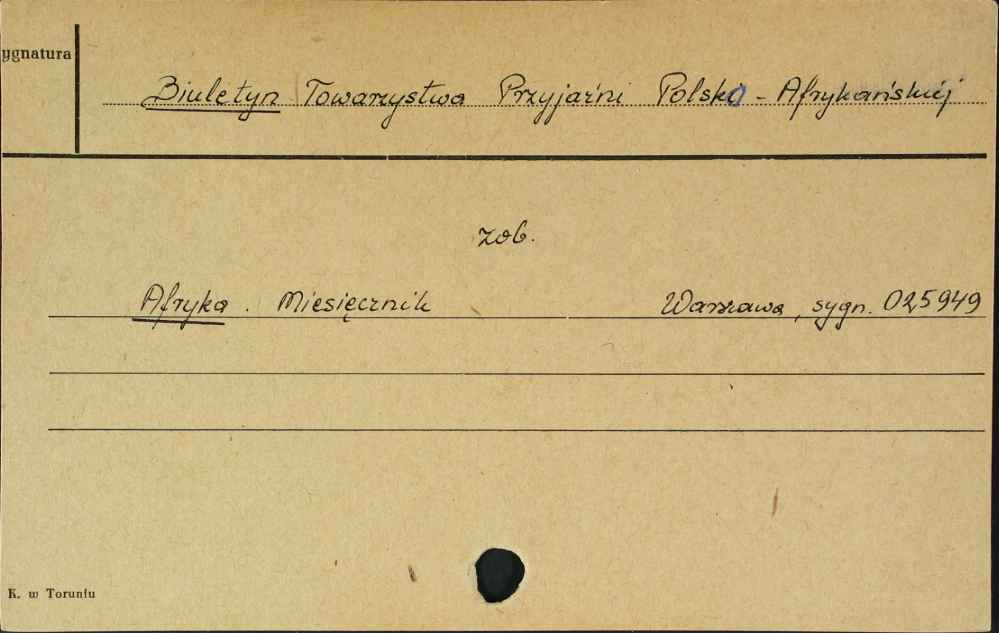 ygnatura
Biuletyn Towarzystwa Przyjaźni Polsko - Afrykańskiej
zob.
Afryka. Miesięcznik Warszawa, sygn. 025949
K. w Toruniu